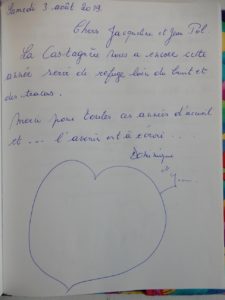 Samedi 3 août 2019.
Chers Jacqueline et Jean Pol.
La Castagnée nous a encore cette
année servi de refuge loin du bruit et
des tracas.
Merci pour toutes ces années d'accueil
et .... l'avenir est à écrire...
Dominique
et